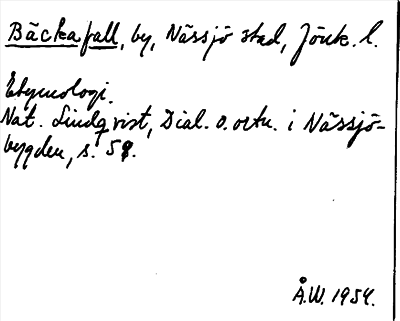 Bäckafall, by, Nässjö stad, Jönk. l.
Etymologi.
Nat. Lindqvist, Dial. o. ortn. i Nässjö-
bygden, s. 59.
Å.W. 1954.